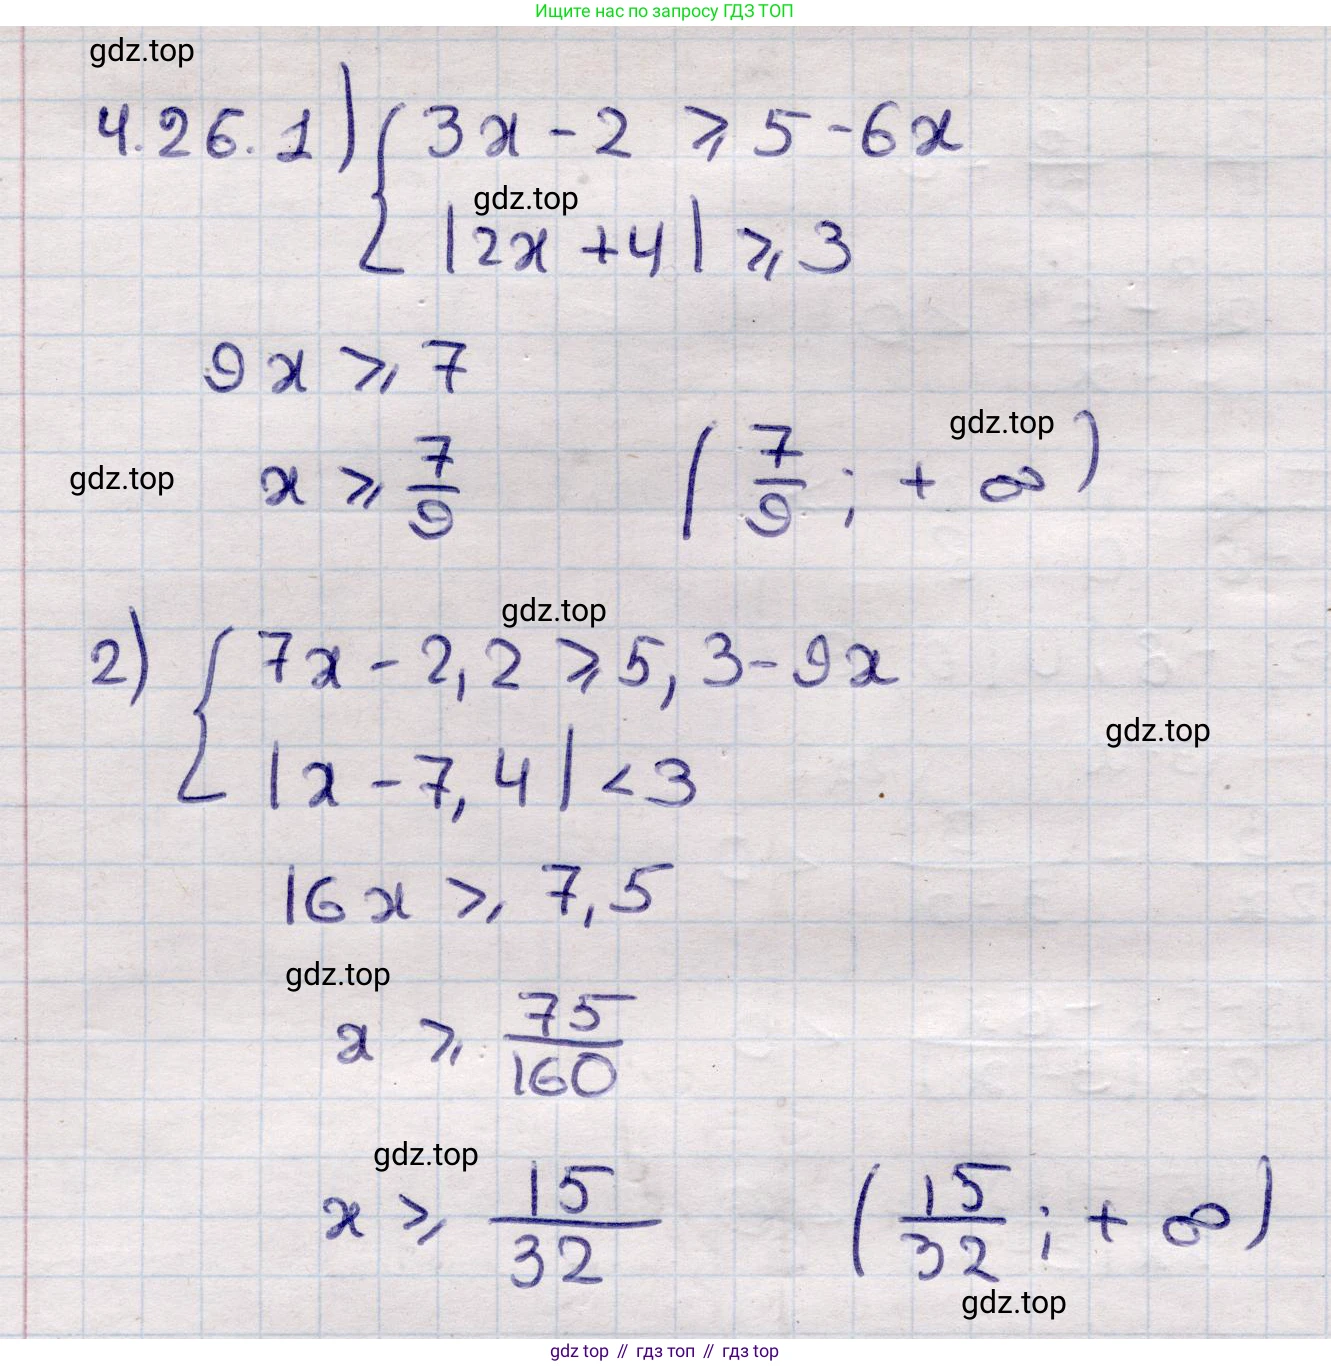 Ищите нас по запросу ГДЗ ТОП
gdz.top
4.26.1) { 3x - 2 ⩾ 5 - 6x
gdz.top
|2x + 4| ⩾ 3
9x ⩾ 7
gdz.top
gdz.top
x ⩾ 7/9 (7/9; + ∞)
gdz.top
2) { 7x - 2,2 ⩾ 5,3 - 9x
gdz.top
|x - 7,4| < 3
16x ⩾ 7,5
gdz.top
x ⩾ 75/160
gdz.top
x ⩾ 15/32 (15/32; + ∞)
gdz.top
gdz top // гдз топ // гдз top